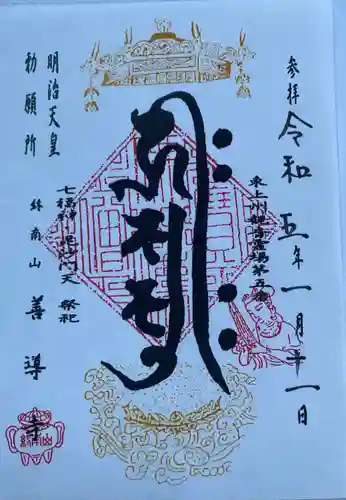 参拝
令和五年一月十一日
東上州観音霊場第五番
明治天皇
勅願所
七福神 毘沙門天 祭祀
終南山
善導寺